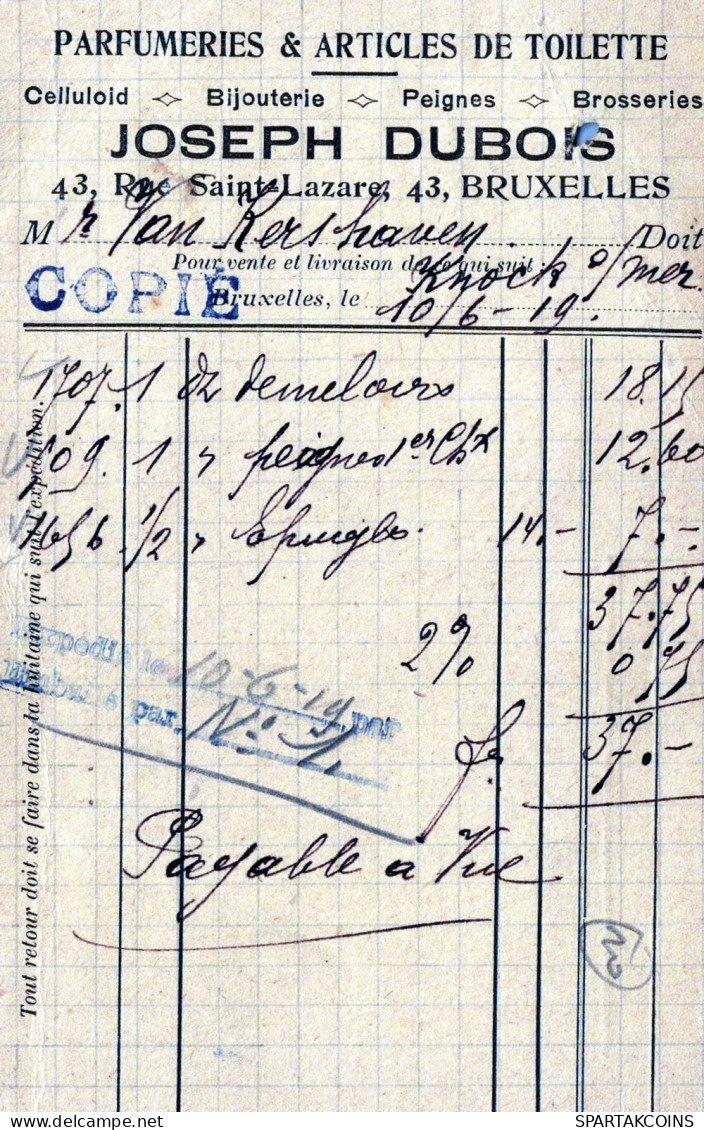 PARFUMERIES & ARTICLES DE TOILETTE
Celluloid Bijouterie Peignes Brosseries
JOSEPH DUBOIS
43, Rue Saint-Lazare, 43, BRUXELLES
M r Van Kershaven Doit
Pour vente et livraison de ce qui suit:
Knock s/mer
COPIÉ
Bruxelles, le 10/6-19.
1707. 1 dz demeloirs 18.15
109. 1 " peignes 12.60
1656 1/2 " Epingles. 14.- 7.-
37.75
2% 0.75
fr 37.-
10-6-19 par
par. N° 1.
Payable a Vue
Tout retour doit se faire dans la huitaine qui suit l'expédition.
www.delcampe.net
SPARTAKCOINS